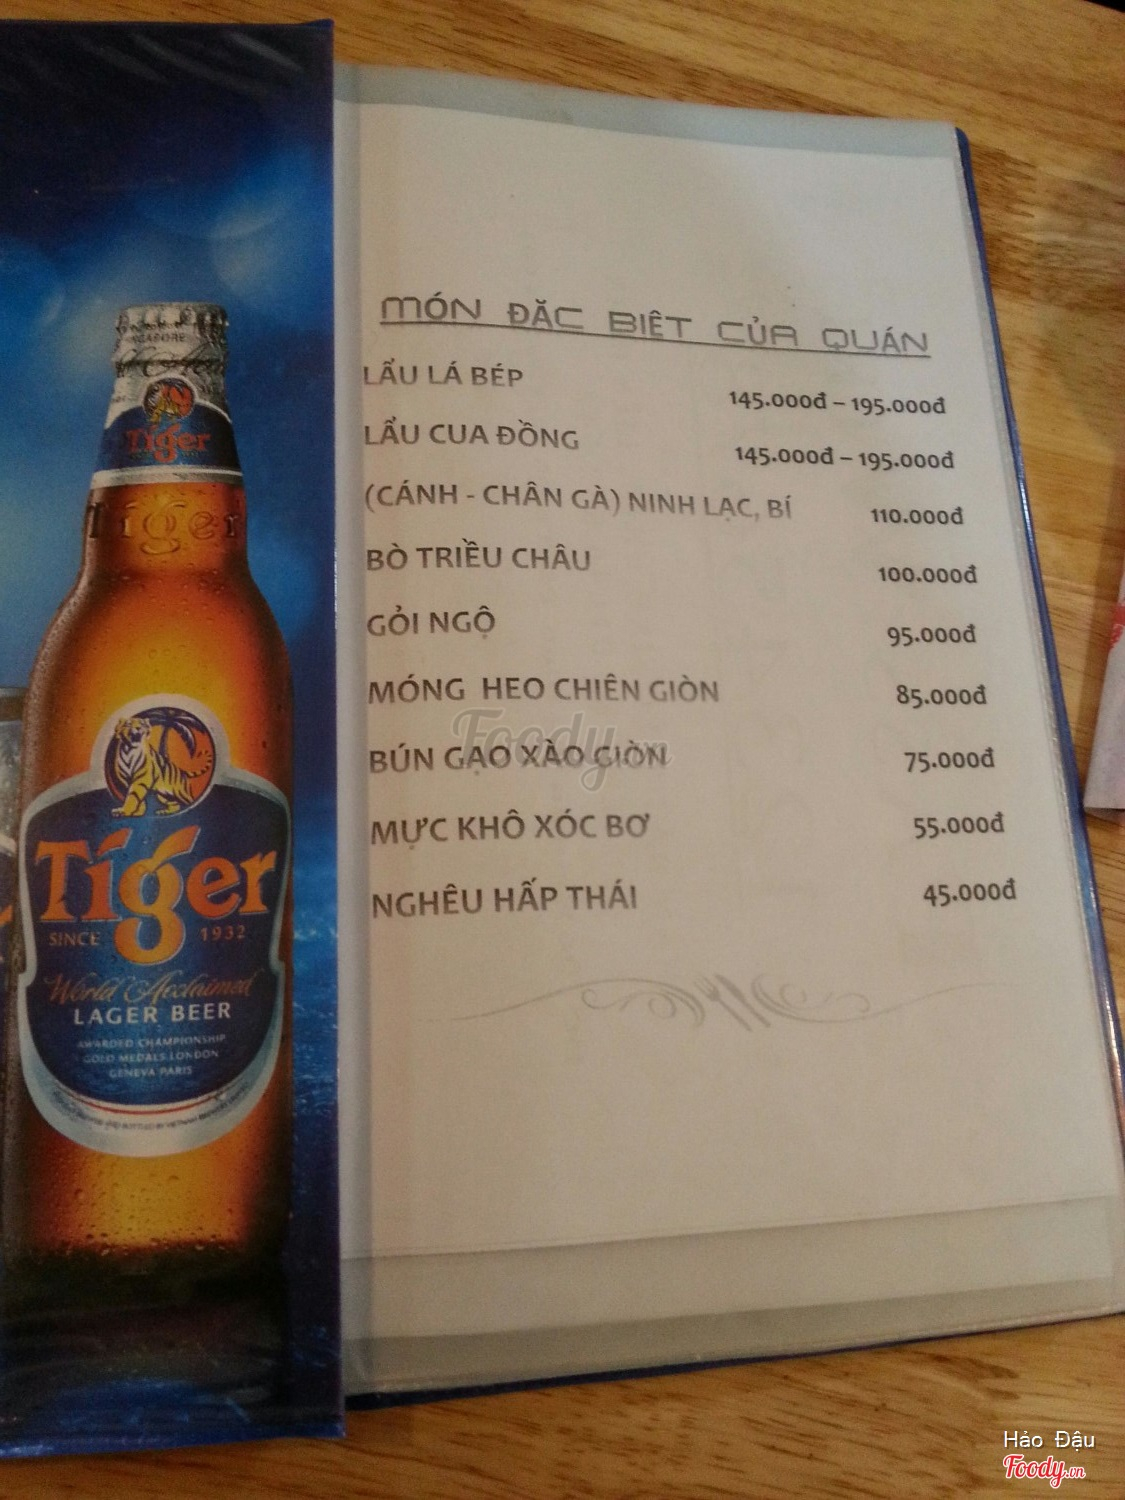 Tiger
Tiger
Tiger
SINCE 1932
World Acclaimed
LAGER BEER
AWARDED CHAMPIONSHIP
GOLD MEDALS LONDON
GENEVA PARIS
MÓN ĐẶC BIỆT CỦA QUÁN
LẨU LÁ BÉP 145.000đ – 195.000đ
LẨU CUA ĐỒNG 145.000đ – 195.000đ
(CÁNH - CHÂN GÀ) NINH LẠC, BÍ 110.000đ
BÒ TRIỀU CHÂU 100.000đ
GỎI NGỘ 95.000đ
MÓNG HEO CHIÊN GIÒN 85.000đ
BÚN GẠO XÀO GIÒN 75.000đ
MỰC KHÔ XÓC BƠ 55.000đ
NGHÊU HẤP THÁI 45.000đ
Foody.vn
Hảo Đậu
Foody.vn